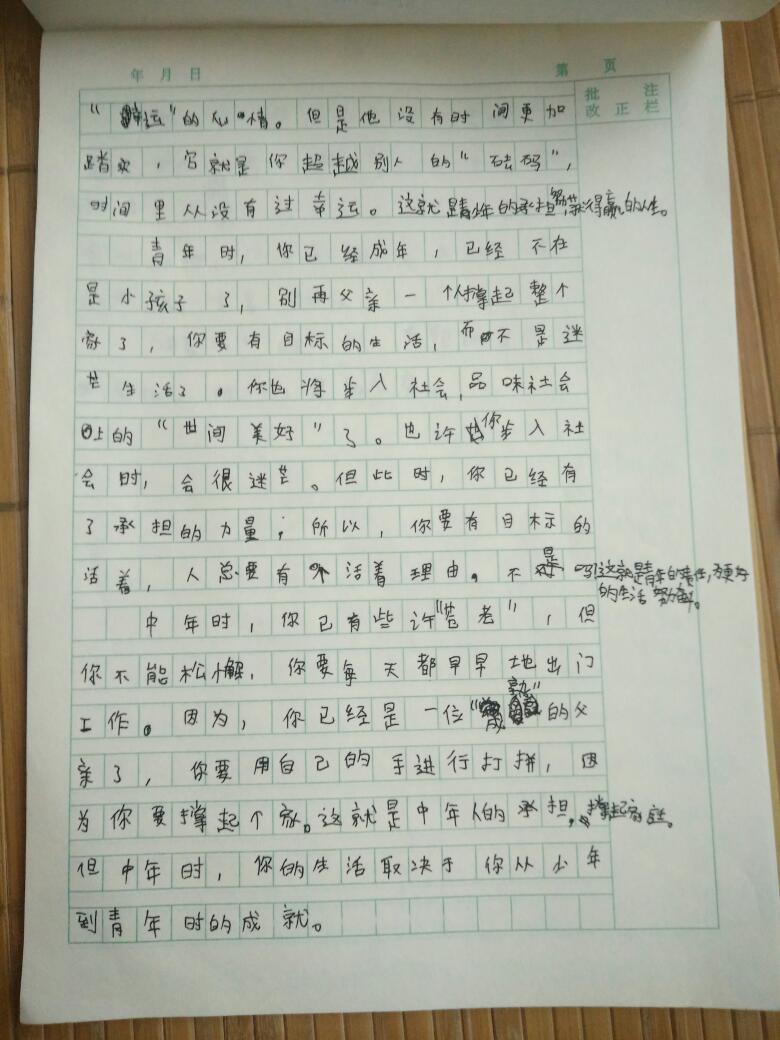 年 月 日
第 页
批 注
改 正 栏
“运”的心情。但是他没有时间更加
踏实，它就是你超越别人的“砝码”，
时间里从没有过幸运。这就是青少年的承担，努力获得赢的人生。
青年时，你已经成年，已经不在
是小孩子了，别再父亲一个人撑起整个
家了，你要有目标的生活，而不是迷
芒生活了。你也将步入社会,品味社会
上的“世间美好”了。也许你步入社
会时，会很迷芒。但此时，你已经有
了承担的力量；所以，你要有目标的
活着，人总要有个活着理由。不是吗!这就是青年的责任,为更好
的生活努力奋斗。
中年时，你已有些许“苍老”，但
你不能松懈，你要每天都早早地出门
工作。因为，你已经是一位“成熟”的父
亲了，你要用自己的手进行打拼，因
为你要撑起个家。这就是中年人的承担，撑起家庭。
但中年时，你的生活取决于你从少年
到青年时的成就。